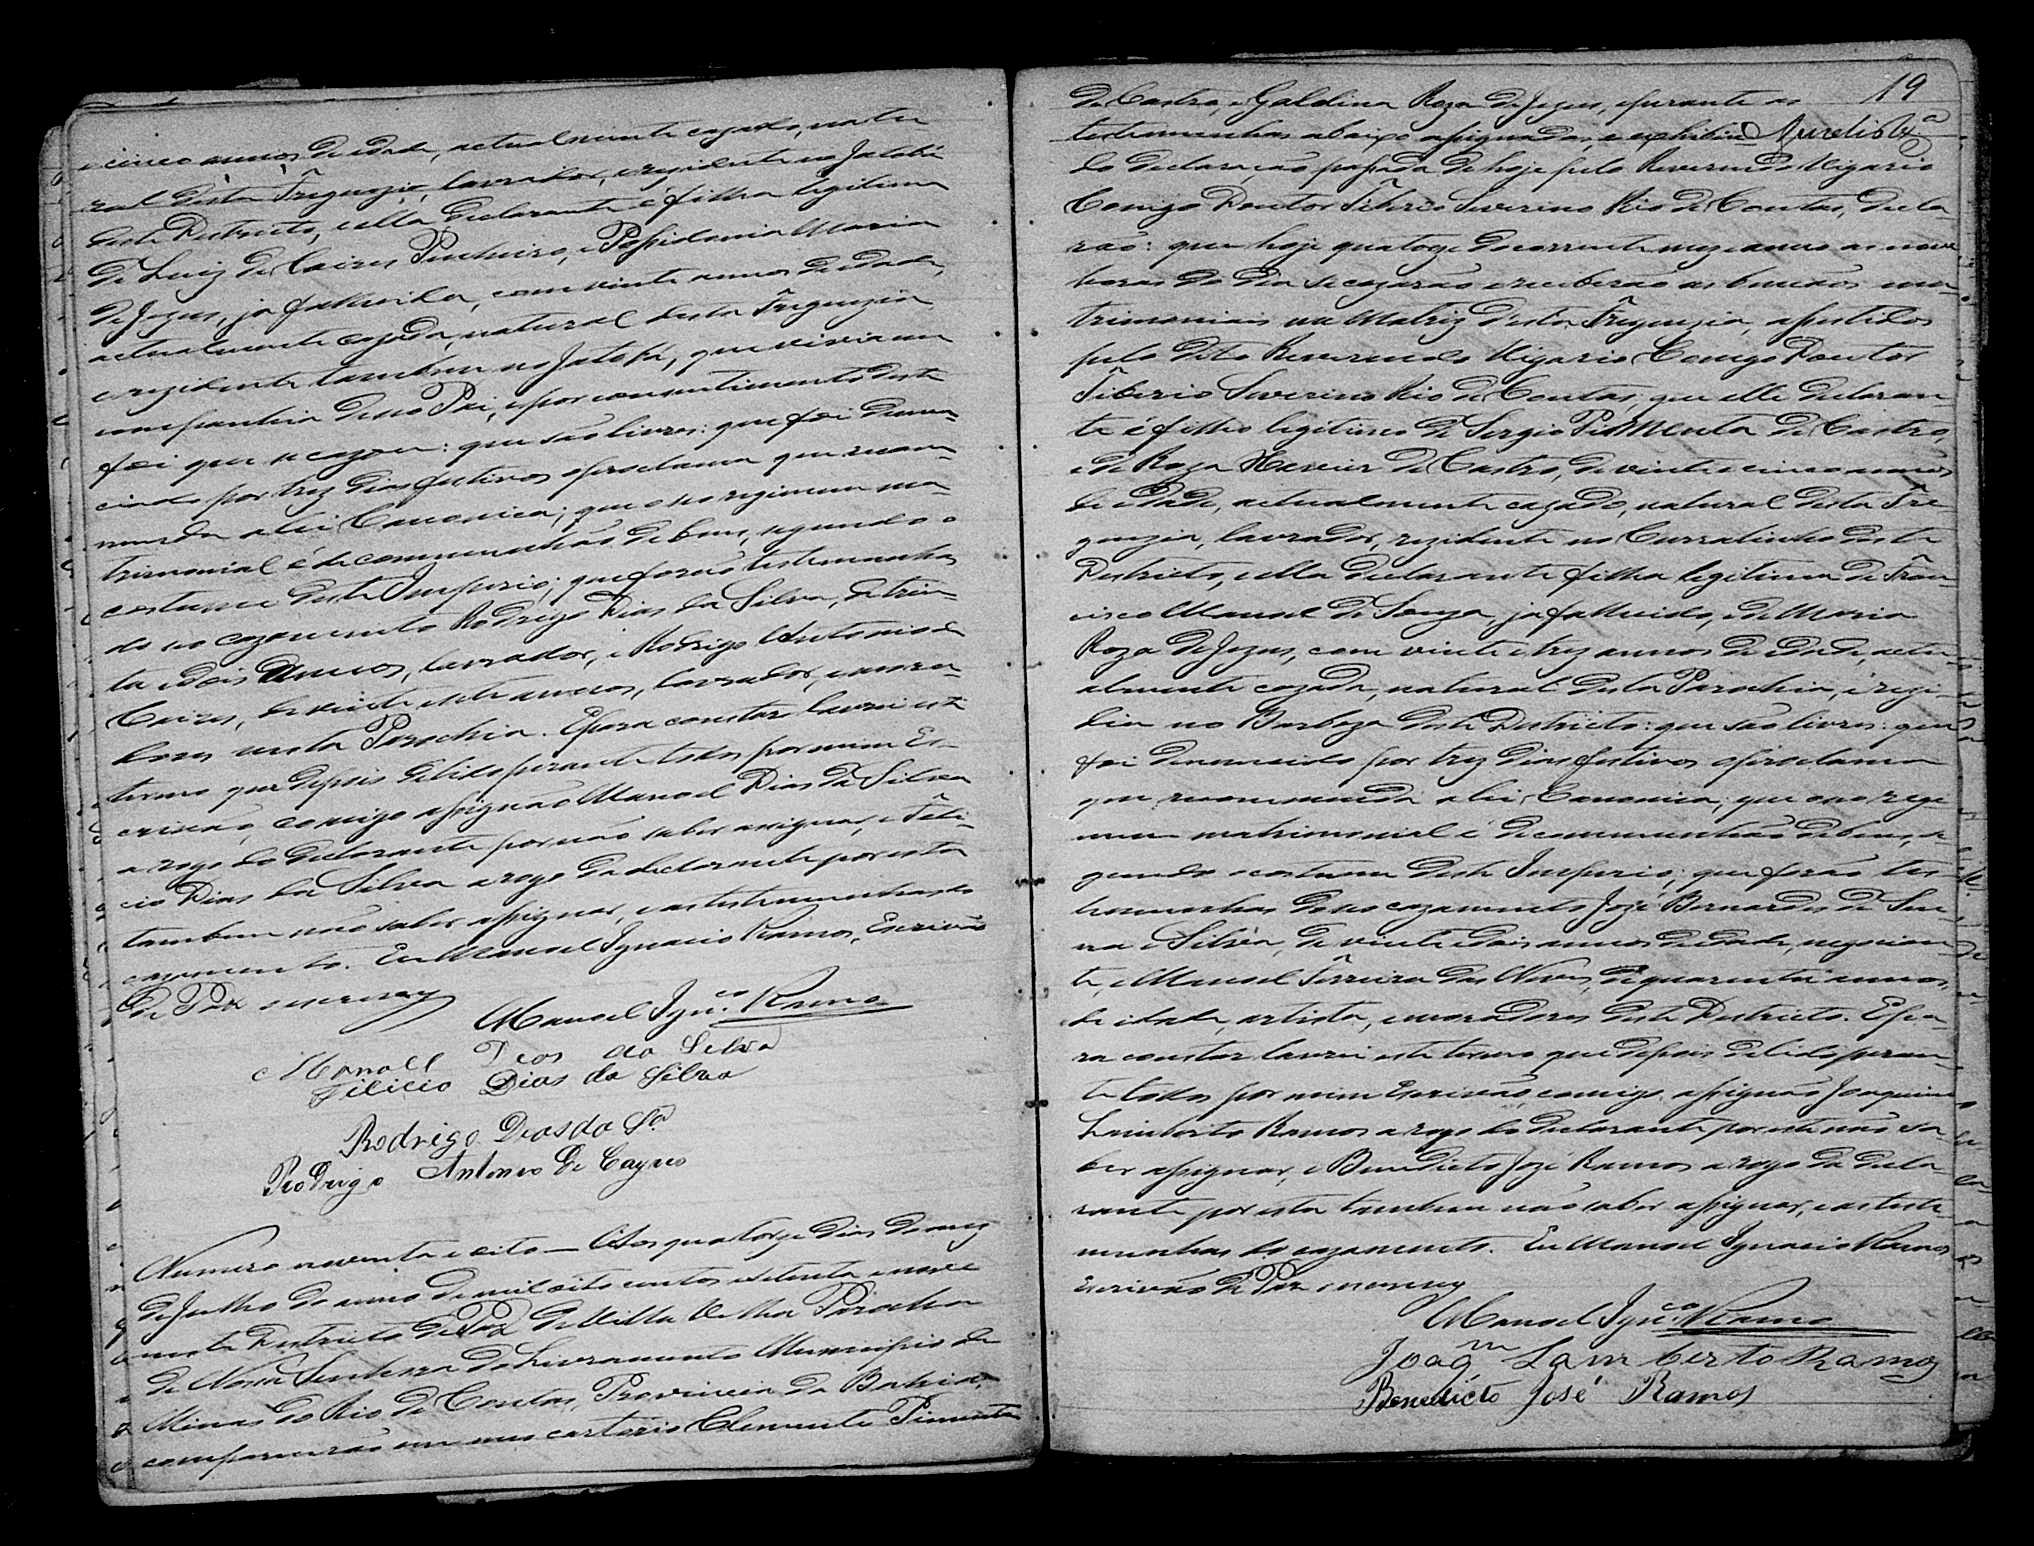 e cinco annos de edade, actualmente cazado, natu
ral desta Freguezia, lavrador, rezidente no Jatobá
deste Districto, e ella declarante é filha legitima
de Luiz de Caires Pinheiro, e Possidonia Maria
de Jezus, já fallecida, com vinte annos de edade,
actualmente cazada, natural desta Freguezia
e rezidente tambem no Jatobá, que vivia em
companhia de seo Pai, e por consentimento deste
foi que se cazou: que são livres: que foi denun-
ciado por trez dias festivos o proclama que recom-
menda a lei Canonica; que o seo regimem ma-
trimonial é de communhão de bens, segundo o
costume deste Imperio; que forão testemunhas
do seo cazamento Rodrigo Dias da Silva, de trin-
ta e dois annos, lavrador, e Rodrigo Antonio de
Caires, de vinte e sete annos, lavrador, e mora-
dores nesta Parochia. E para constar lavrei este
termo que depois de lido perante todos por mim Es-
crivão, comigo assignão Manoel Dias da Silva
a rogo do declarante por não saber assignar, e Feli-
cio Dias da Silva a rogo da declarante por esta
tambem não saber assignar, e as testemunhas do
cazamento. Eu Manoel Ignacio Ramos, Escrivão
de Paz o escrevy
Manoel Ign.co Ramos
Manoel Dias da Silva
Filicio Dias da Silva
Rodrigo Dias da S.a
Rodrigo Antonio de Cayres
Numero noventa e oito — Aos quatorze dias do mez
de Julho do anno de mil oito centos e setenta e nove
neste Districto de Paz da Villa Velha Parochia
de Nossa Senhora do Livramento Municipio de
Minas do Rio de Contas, Provincia da Bahia,
comparecerão em meu cartorio Clemente Pimenta
19
de Castro, e Galdina Roza de Jezus, e perante as
testemunhas abaixo assignadas, e exhibin
do declaração passada de hoje pelo Reverendo Vigario
Conego Doutor Tiberio Severino Rio de Contas, decla
rão: que hoje quatorze do corrente mez e anno as nove
horas do dia se cazarão e receberão as bençãos ma-
trimoniais na Matriz desta Freguezia, assistidos
pelo dito Reverendo Vigario Conego Doutor
Tiberio Severino Rio de Contas, que elle declaran-
te é filho legitimo de Sergio Pimenta de Castro,
e de Roza Xavier de Castro, de vinte e cinco annos
de edade, actualmente cazado, natural desta Fre
guezia, lavrador, rezidente no Curralinho deste
Districto, e ella declarante filha legitima de Fran-
cisco Manoel de Souza, já fallecido, e de Maria
Roza de Jezus, com vinte e trez annos de edade, actu-
almente cazada, natural desta Parochia, e rezi-
dia no Barboza deste Districto: que são livres: que
foi denunciado por trez dias festivos o proclama
que recommenda a lei Canonica, que o seo regi-
mem matrimonial é de communhão de bens, se
gundo o costume deste Imperio; que forão tes
temunhas de seo cazamento Jozé Bernardes de Sen
na e Silva, de vinte e dois annos de edade, negocian-
te, e Manoel Ferreira das Neves, de quarenta annos,
de edade, artista, e moradores deste Districto. E pa-
ra constar lavrei este termo que depois de lido peran-
te todos por mim Escrivão, comigo assignão Joaquim
Lamberto Ramos a rogo do declarante por este não sa-
ber assignar, e Benedicto Jozé Ramos a rogo da decla
rante, por esta tambem não saber assignar, e as teste-
munhas do cazamento. Eu Manoel Ignacio Ramos
Escrivão de Paz o escrevy
Manoel Ign.co Ramos
Joaq.m Lamberto Ramos
Benedicto José Ramos